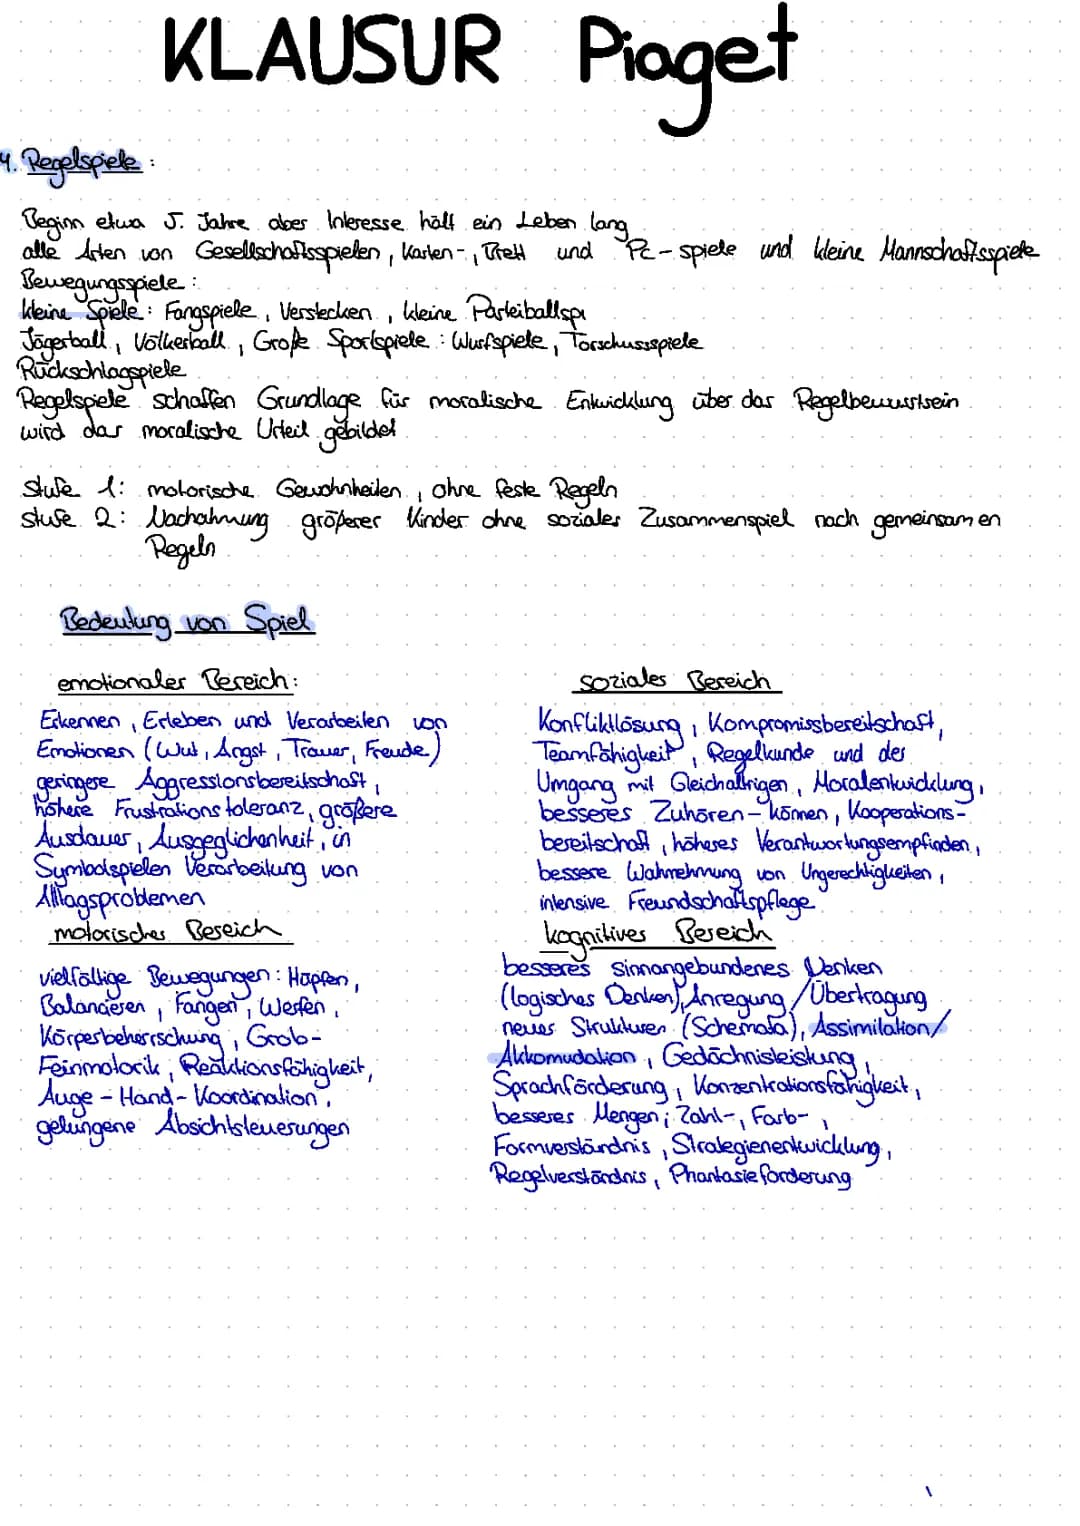 KLAUSUR Piaget
4. Regelspiele :
Beginn etwa 5. Jahre aber Interesse hält ein Leben lang
alle Arten von Gesellschaftsspielen, Karten-, Brett und Pc-spiele und kleine Mannschaftsspiele
Bewegungsspiele :
kleine Spiele : Fangspiele, Verstecken, kleine Parteiballspi
Jägerball, Völkerball, Große Sportspiele : Wurfspiele, Torschussspiele
Rückschlagspiele
Regelspiele schaffen Grundlage für moralische Entwicklung über das Regelbewusstsein
wird das moralische Urteil gebildet
Stufe 1: motorische Gewohnheiten, ohne feste Regeln
Stufe 2: Nachahmung größerer Kinder ohne soziales Zusammenspiel nach gemeinsamen
Regeln
Bedeutung von Spiel
emotionaler Bereich:
Erkennen, Erleben und Verarbeiten von
Emotionen (Wut, Angst, Trauer, Freude)
geringere Aggressionsbereitschaft,
höhere Frustrationstoleranz, größere
Ausdauer, Ausgeglichenheit, in
Symbolspielen Verarbeitung von
Alltagsproblemen
soziales Bereich
Konfliktlösung, Kompromissbereitschaft,
Teamfähigkeit, Regelkunde und der
Umgang mit Gleichaltrigen, Moralentwicklung,
besseres Zuhören-können, Kooperations-
bereitschaft, höheres Verantwortungsempfinden,
bessere Wahrnehmung von Ungerechtigkeiten,
intensive Freundschaftspflege
motorisches Bereich
vielfältige Bewegungen: Hüpfen,
Balancieren, Fangen, Werfen,
Körperbeherrschung, Grob-
Feinmotorik, Reaktionsfähigkeit,
Auge-Hand-Koordination,
gelungene Absichtsteuerungen
kognitives Bereich
besseres sinnangebundenes Denken
(logisches Denken), Anregung/Übertragung
neuer Strukturen (Schemata), Assimilation/
Akkomudation, Gedächnisleistung,
Sprachförderung, Konzentrationsfähigkeit,
besseres Mengen; Zahl-, Farb-,
Formverständnis, Strategienentwicklung,
Regelverständnis, Phantasieförderung